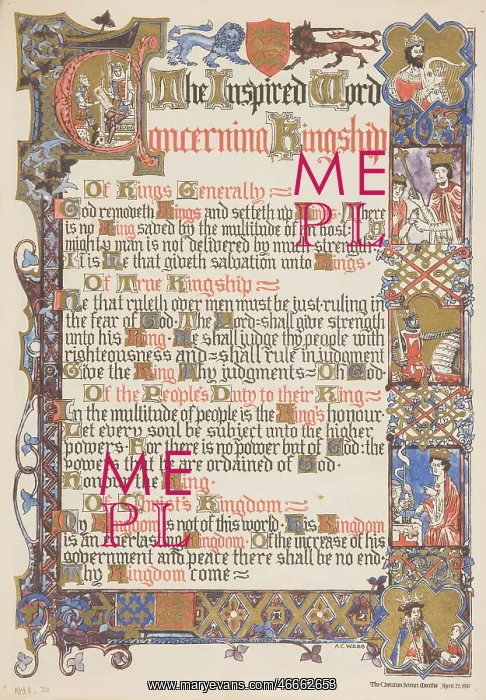 The Inspired Word
Concerning Kingship
Of Kings Generally
God removeth Kings and setteth up Kings. There
is no King saved by the multitude of an host: A
mighty man is not delivered by much strength.
It is He that giveth salvation unto Kings.
Of True Kingship
He that ruleth over men must be just-ruling in
the fear of God. The Lord=shall give strength
unto his King. He shall judge thy people with
righteousness and=shall rule in judgment
Give the King Thy judgments=Oh God.
Of the People's Duty to their King
In the multitude of people is the King's honour.
Let every soul be subject unto the higher
powers. For there is no power but of God: the
powers that be are ordained of God.
Honour the King.
Of Christ's Kingdom
My Kingdom is not of this world. His Kingdom
is an everlasting Kingdom. Of the increase of his
government and peace there shall be no end.
Thy Kingdom come
ME
PL
ME
PL
A.C. WEBB
The Christian Science Monitor April 22, 1937
1993. 20
www.maryevans.com/46662653